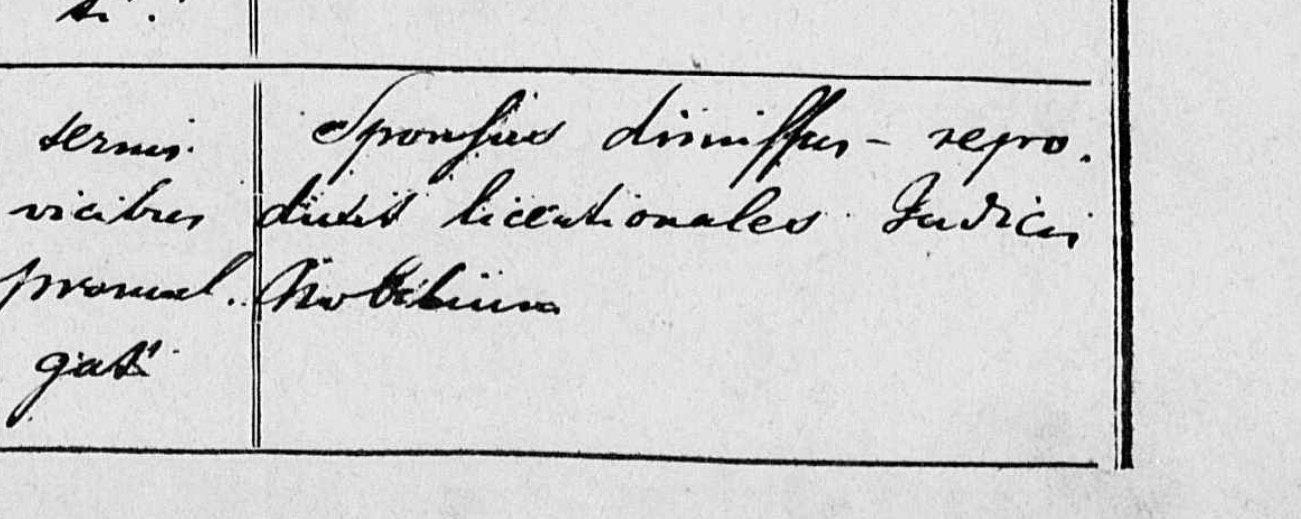 ti.
ternis
vicibus
promul.
gati
Sponsus dimissus - repro.
duxit licentionales Judicii
Nobilium